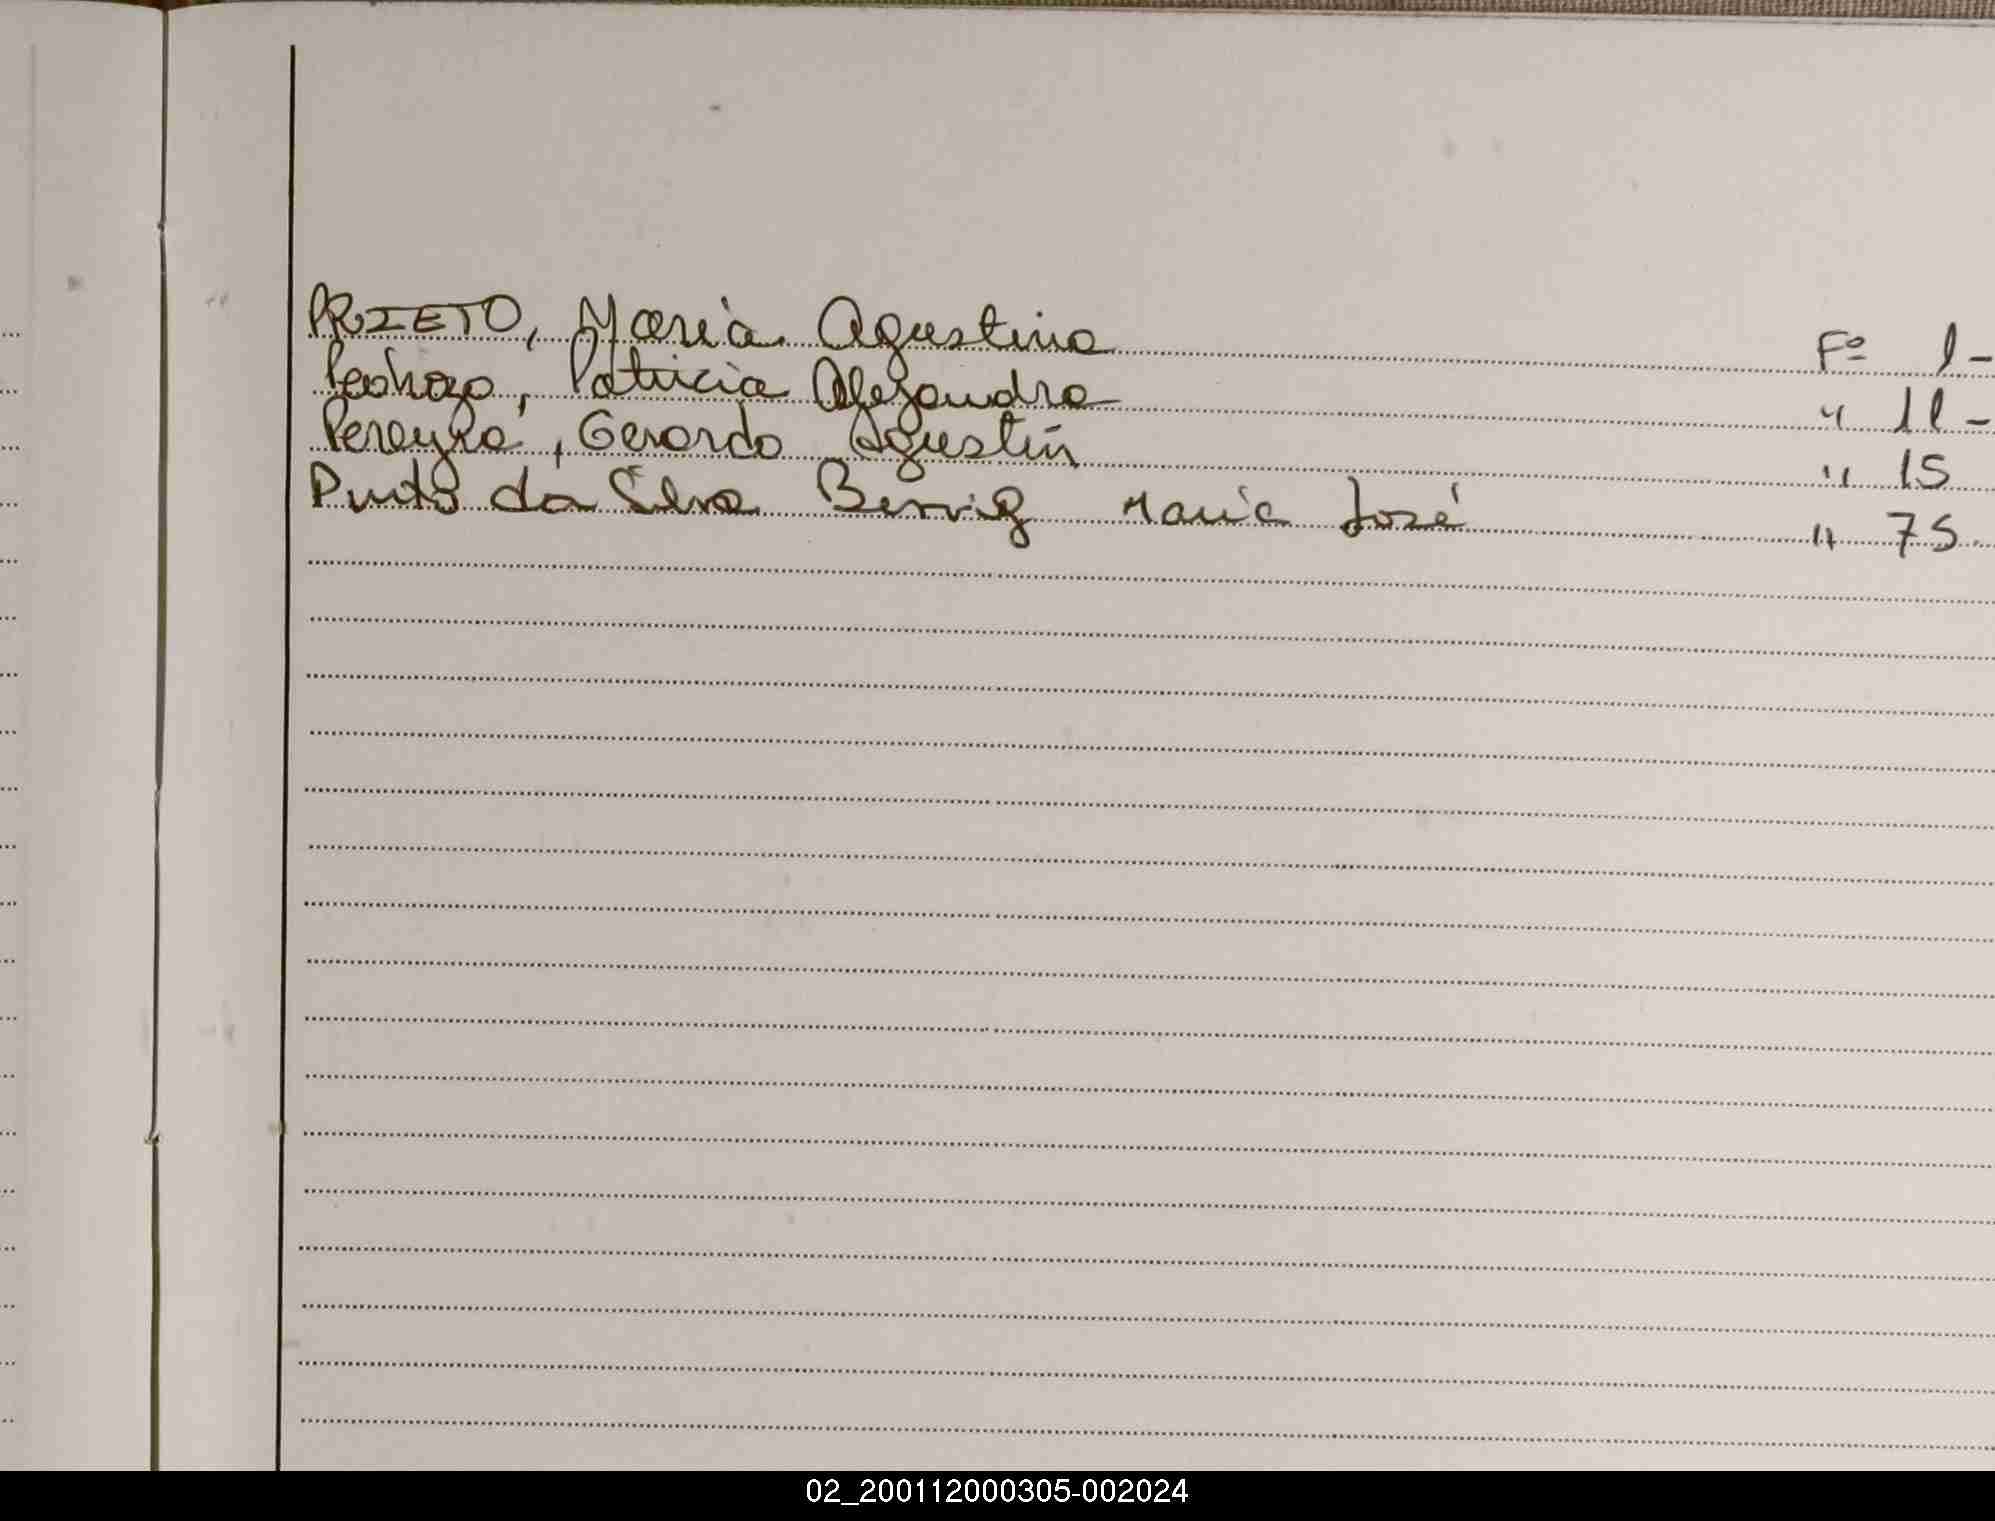 PRIETO, María Agustina Fº 1-
Pedrozo, Patricia Alejandra " 11-
Pereyra, Gerardo Agustín " 15
Pinto da Silva María José " 75.
02_200112000305-002024